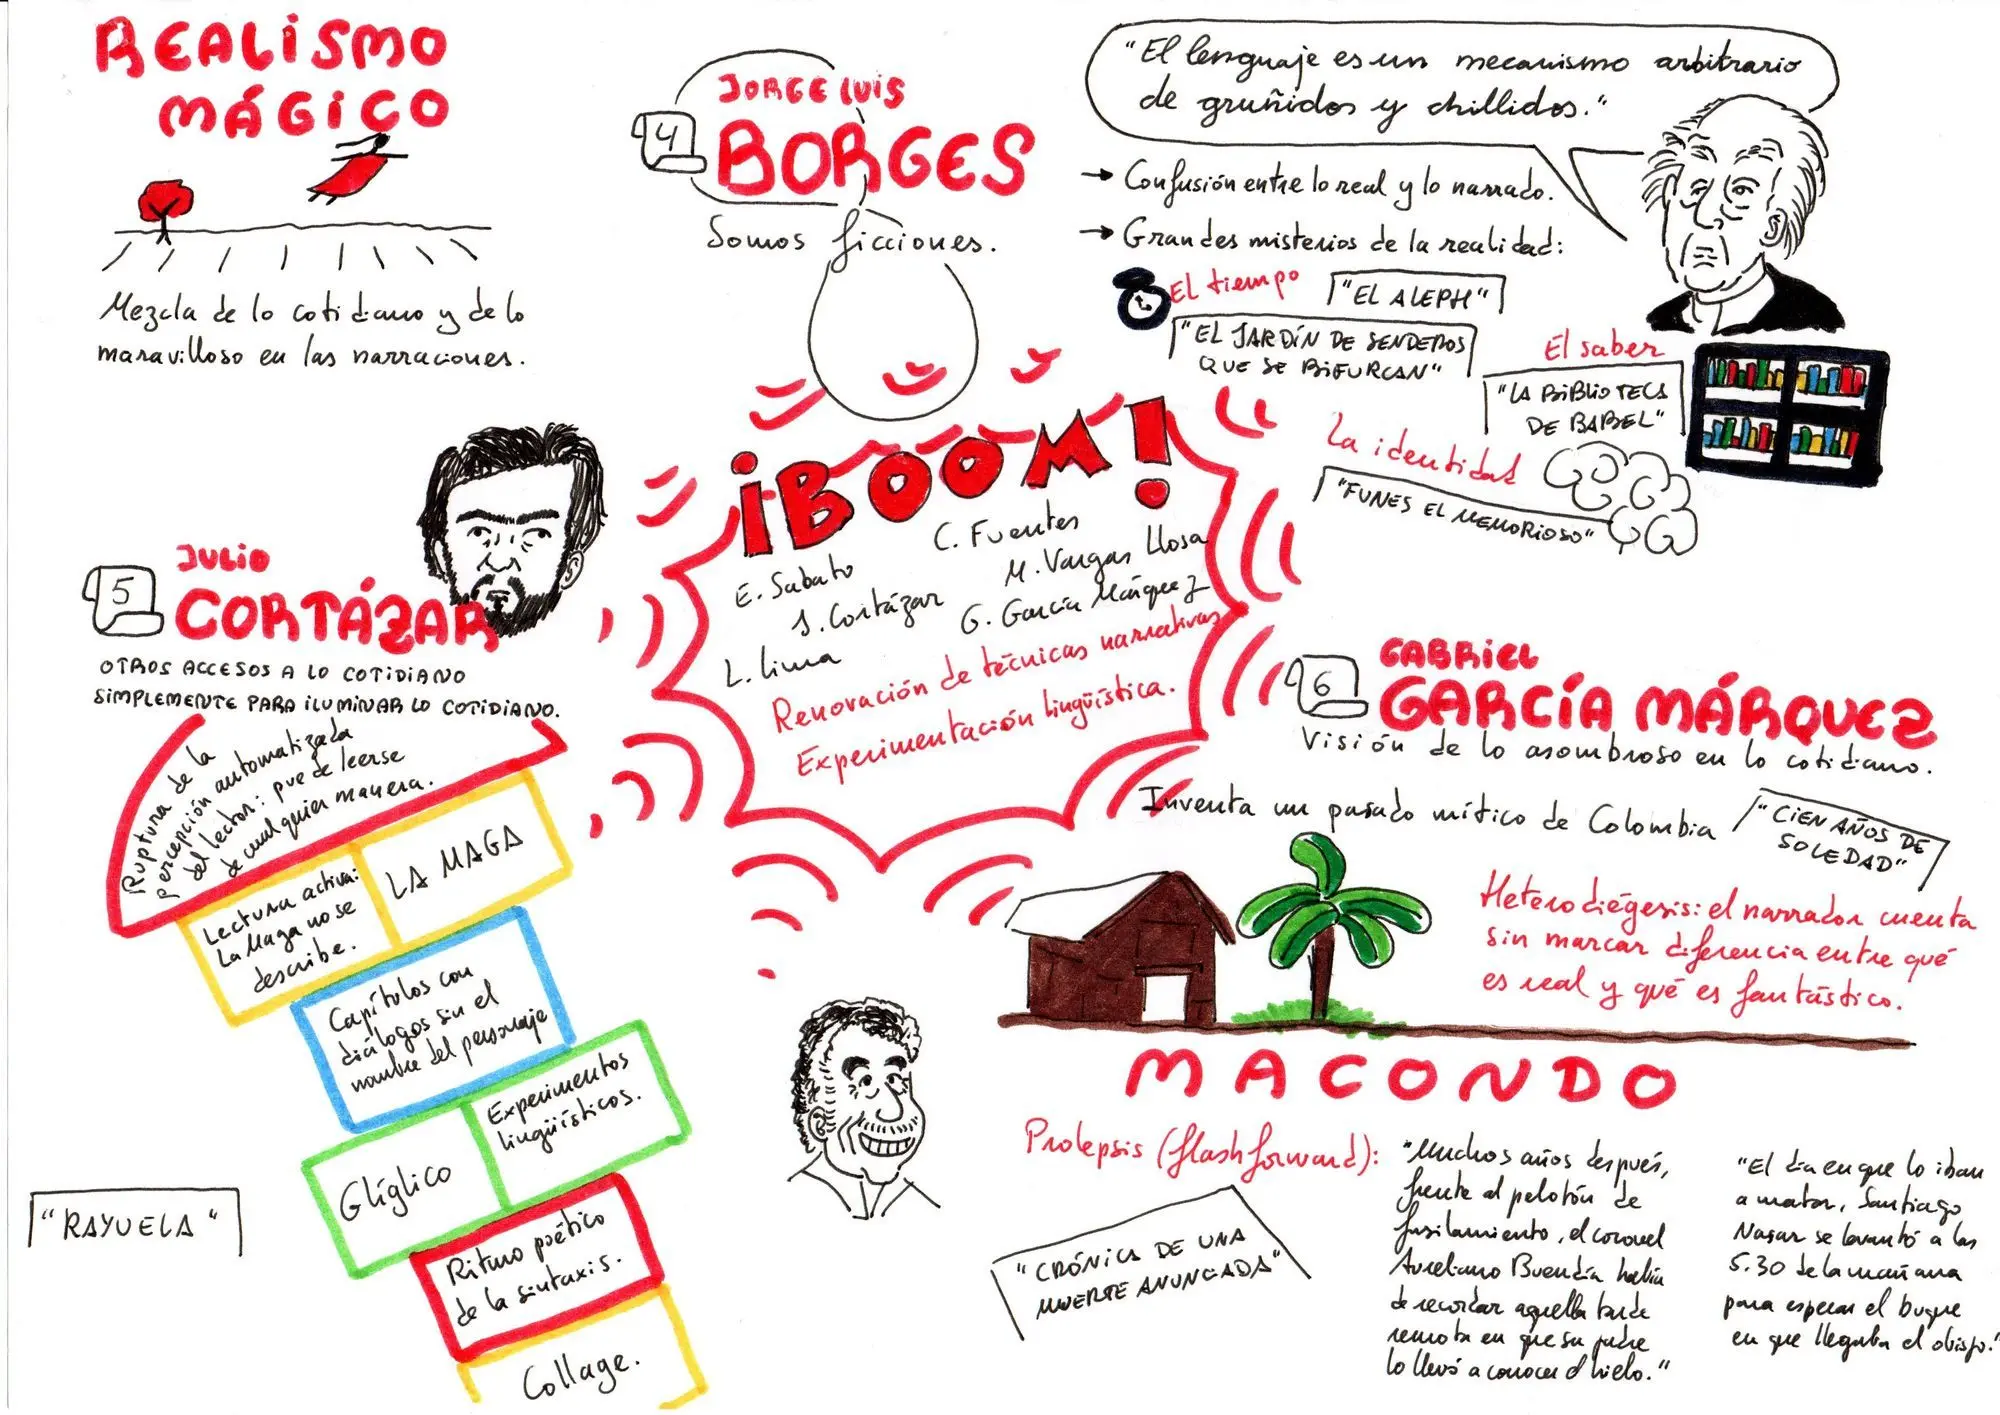 REALISMO
MÁGICO
Mezcla de lo cotidiano y de lo
maravilloso en las narraciones.
4
JORGE LUIS
BORGES
Somos ficciones.
"El lenguaje es un mecanismo arbitrario
de gruñidos y chillidos."
→ Confusión entre lo real y lo narrado.
→ Grandes misterios de la realidad:
El tiempo
"EL ALEPH"
"EL JARDÍN DE SENDEROS
QUE SE BIFURCAN"
El saber
"LA BIBLIOTECA
DE BABEL"
La identidad
"FUNES EL MEMORIOSO"
¡BOOM!
C. Fuentes
E. Sabato
M. Vargas Llosa
J. Cortázar
G. García Márquez
L. Lima
Renovación de técnicas narrativas
Experimentación lingüística.
5
JULIO
CORTÁZAR
OTROS ACCESOS A LO COTIDIANO
SIMPLEMENTE PARA ILUMINAR LO COTIDIANO.
Ruptura de la
percepción automatizada
del lector: puede leerse
de cualquier manera.
LA MAGA
Lectura activa:
La Maga no se
describe.
Capítulos con
diálogos sin el
nombre del personaje
Experimentos
lingüísticos.
Glíglico
Ritmo poético
de la sintaxis.
Collage.
"RAYUELA"
6
GABRIEL
GARCÍA MÁRQUEZ
Visión de lo asombroso en lo cotidiano.
Inventa un pasado mítico de Colombia
"CIEN AÑOS DE
SOLEDAD"
Heterodiégesis: el narrador cuenta
sin marcar diferencia entre qué
es real y qué es fantástico.
MACONDO
Prolepsis (flashforward):
"Muchos años después,
frente al pelotón de
fusilamiento, el coronel
Aureliano Buendía había
de recordar aquella tarde
remota en que su padre
lo llevó a conocer el hielo."
"El día en que lo iban
a matar, Santiago
Nasar se levantó a las
5.30 de la mañana
para esperar el buque
en que llegaba el obispo."
"CRÓNICA DE UNA
MUERTE ANUNCIADA"